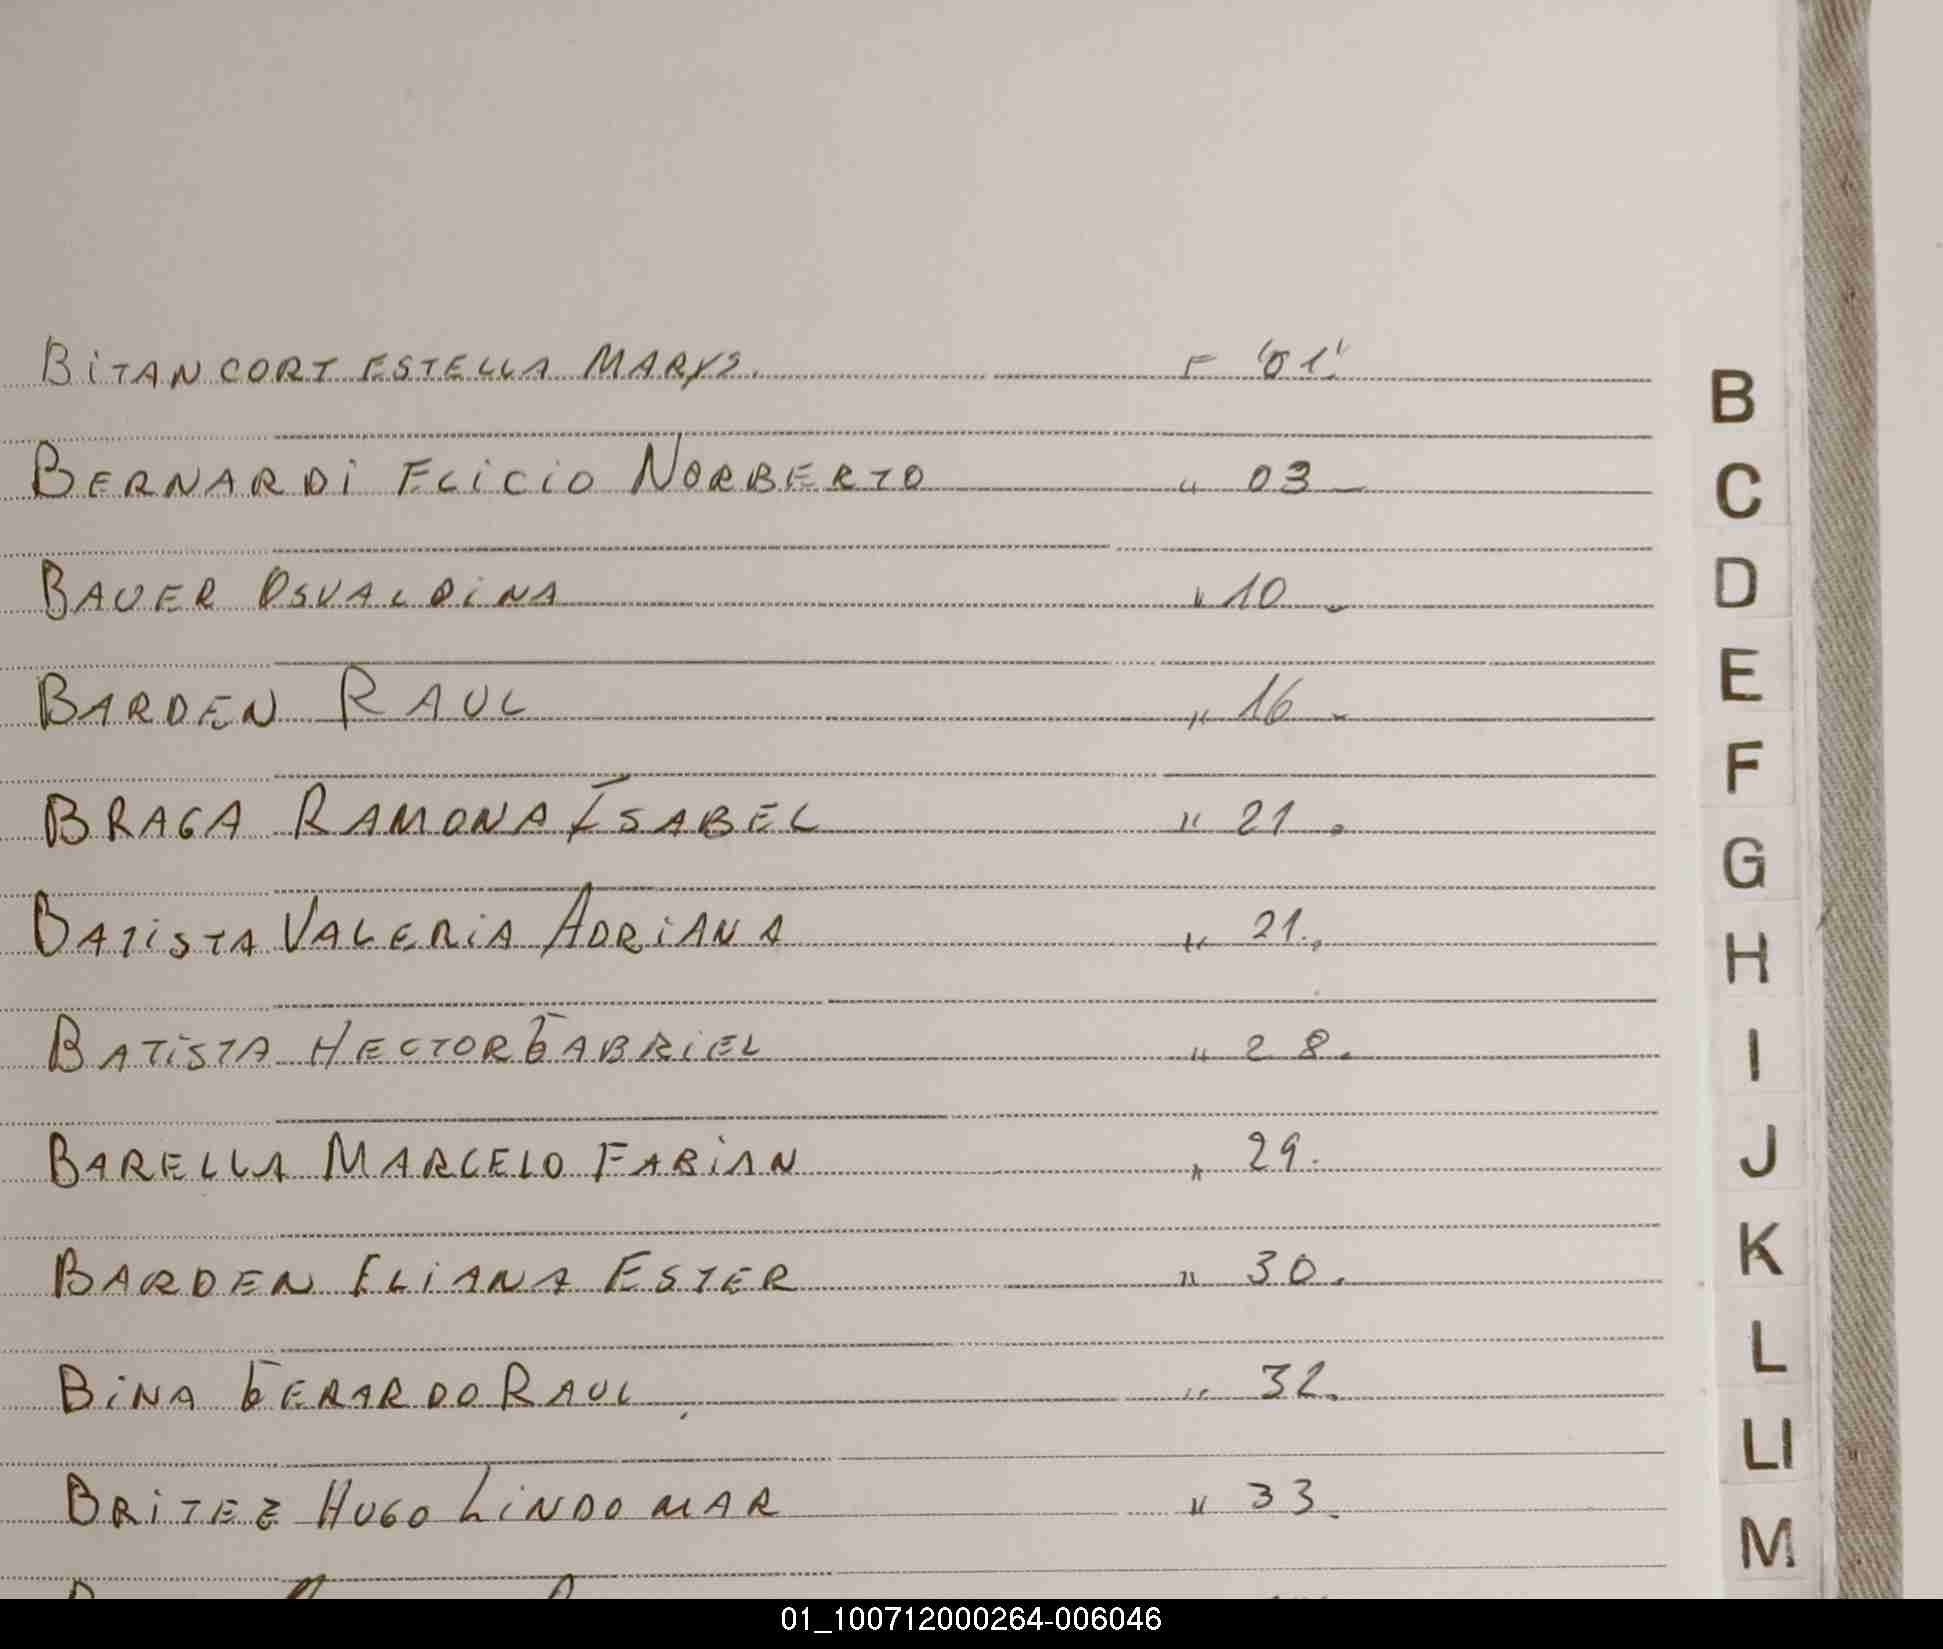 BITANCORT ESTELLA MARYS. F "01"
BERNARDI ELICIO NORBERTO " 03 -
BAUER OSVALDINA " 10 -
BARDEN RAUL " 16 -
BRAGA RAMONA ISABEL " 21 .
BATISTA VALERIA ADRIANA " 21.
BATISTA HECTOR GABRIEL " 28.
BARELLA MARCELO FABIAN " 29.
BARDEN ELIANA ESTER " 30.
BINA GERARDO RAUL " 32.
BRITEZ HUGO LINDOMAR " 33.
B
C
D
E
F
G
H
I
J
K
L
LI
M
01_100712000264-006046